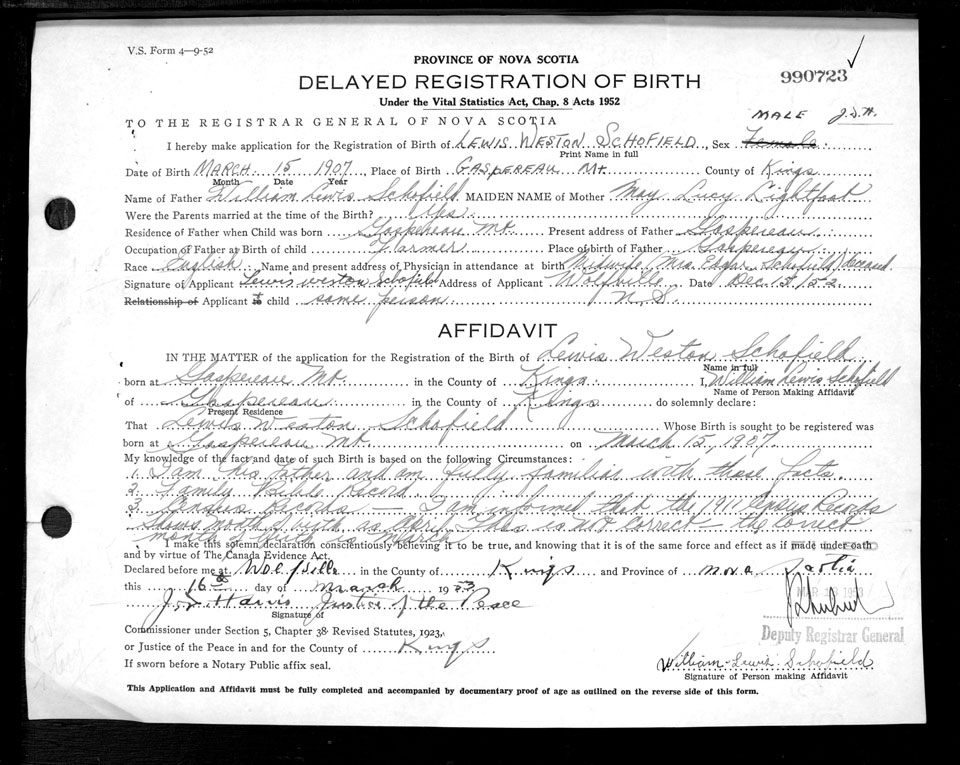 V.S. Form 4—9-52
PROVINCE OF NOVA SCOTIA
DELAYED REGISTRATION OF BIRTH
990723 ✓
Under the Vital Statistics Act, Chap. 8 Acts 1952
MALE J.D.H.
TO THE REGISTRAR GENERAL OF NOVA SCOTIA
I hereby make application for the Registration of Birth of LEWIS WESTON SCHOFIELD, Sex Female
Print Name in full
Date of Birth MARCH 15 1907, Place of Birth GASPEREAU Mt County of Kings
Month Date Year
Name of Father William Lewis Schofield MAIDEN NAME of Mother May Lucy Lightfoot
Were the Parents married at the time of the Birth? Yes
Residence of Father when Child was born Gaspereau Mt. Present address of Father Gaspereau
Occupation of Father at Birth of child Farmer Place of birth of Father Gaspereau
Race English Name and present address of Physician in attendance at birth Midwife (Mrs. Edgar Schofield) deceased
Signature of Applicant Lewis Weston Schofield Address of Applicant Wolfville N.S. Date Dec. 5/52
Relationship of Applicant to child same person
AFFIDAVIT
IN THE MATTER of the application for the Registration of the Birth of Lewis Weston Schofield
Name in full
born at Gaspereau Mt. in the County of Kings I, William Lewis Schofield
Name of Person Making Affidavit
of Gaspereau in the County of Kings do solemnly declare:
Present Residence
That Lewis Weston Schofield Whose Birth is sought to be registered was
born at Gaspereau Mt. on March 15, 1907
My knowledge of the fact and date of such Birth is based on the following Circumstances:
1. I am his father and am fully familiar with these facts
2. Family Bible Record
3. Census Records — I am informed that the 1911 Census Records
shows month of birth as April. This is not correct — the correct
month of birth is March
I make this solemn declaration conscientiously believing it to be true, and knowing that it is of the same force and effect as if made under oath
and by virtue of The Canada Evidence Act.
Declared before me at Wolfville in the County of Kings and Province of Nova Scotia
this 16th day of March 1953
MAR 1953
J.D. Harris Justice of the Peace
Signature of
Deputy Registrar General
Commissioner under Section 5, Chapter 38 Revised Statutes, 1923,
or Justice of the Peace in and for the County of Kings
If sworn before a Notary Public affix seal.
William Lewis Schofield
Signature of Person making Affidavit
This Application and Affidavit must be fully completed and accompanied by documentary proof of age as outlined on the reverse side of this form.